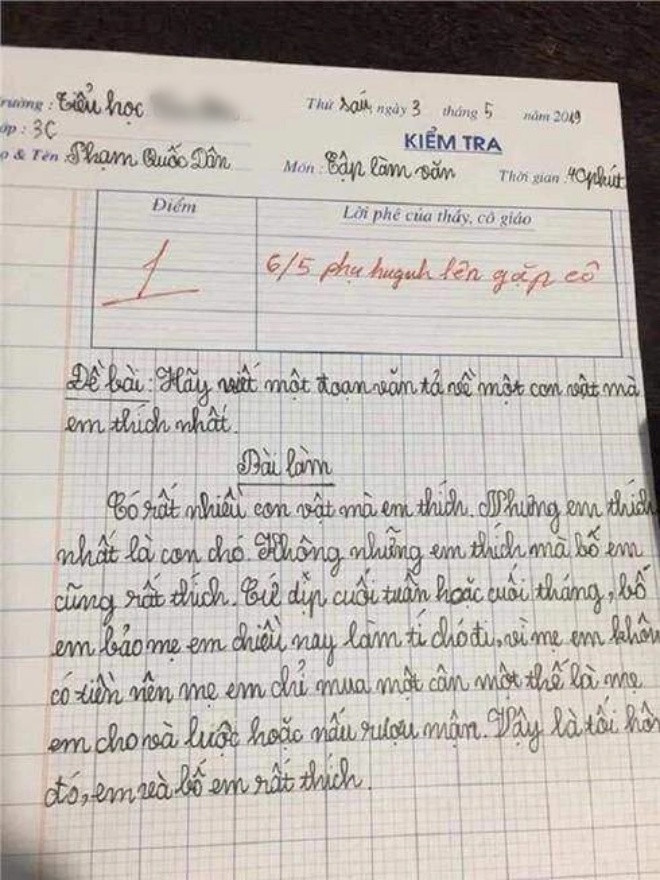 rường : Tiểu học
Thứ sáu, ngày 3 tháng 5 năm 2019
ớp : 3C
KIỂM TRA
ọ & Tên Phạm Quốc Dân
Môn : Tập làm văn Thời gian : 40 phút
Điểm
Lời phê của thầy, cô giáo
1
6/5 phụ huynh lên gặp cô
Đề bài: Hãy viết một đoạn văn tả về một con vật mà
em thích nhất.
Bài làm
Có rất nhiều con vật mà em thích. Nhưng em thích
nhất là con chó. Không những em thích mà bố em
cũng rất thích. Cứ dịp cuối tuần hoặc cuối tháng, bố
em bảo mẹ em chiều nay làm tí chó đi, vì mẹ em khôn
có tiền nên mẹ em chỉ mua một cân một thế là mẹ
em cho và luộc hoặc nấu rượu mận. Vậy là tối hôm
đó, em và bố em rất thích.